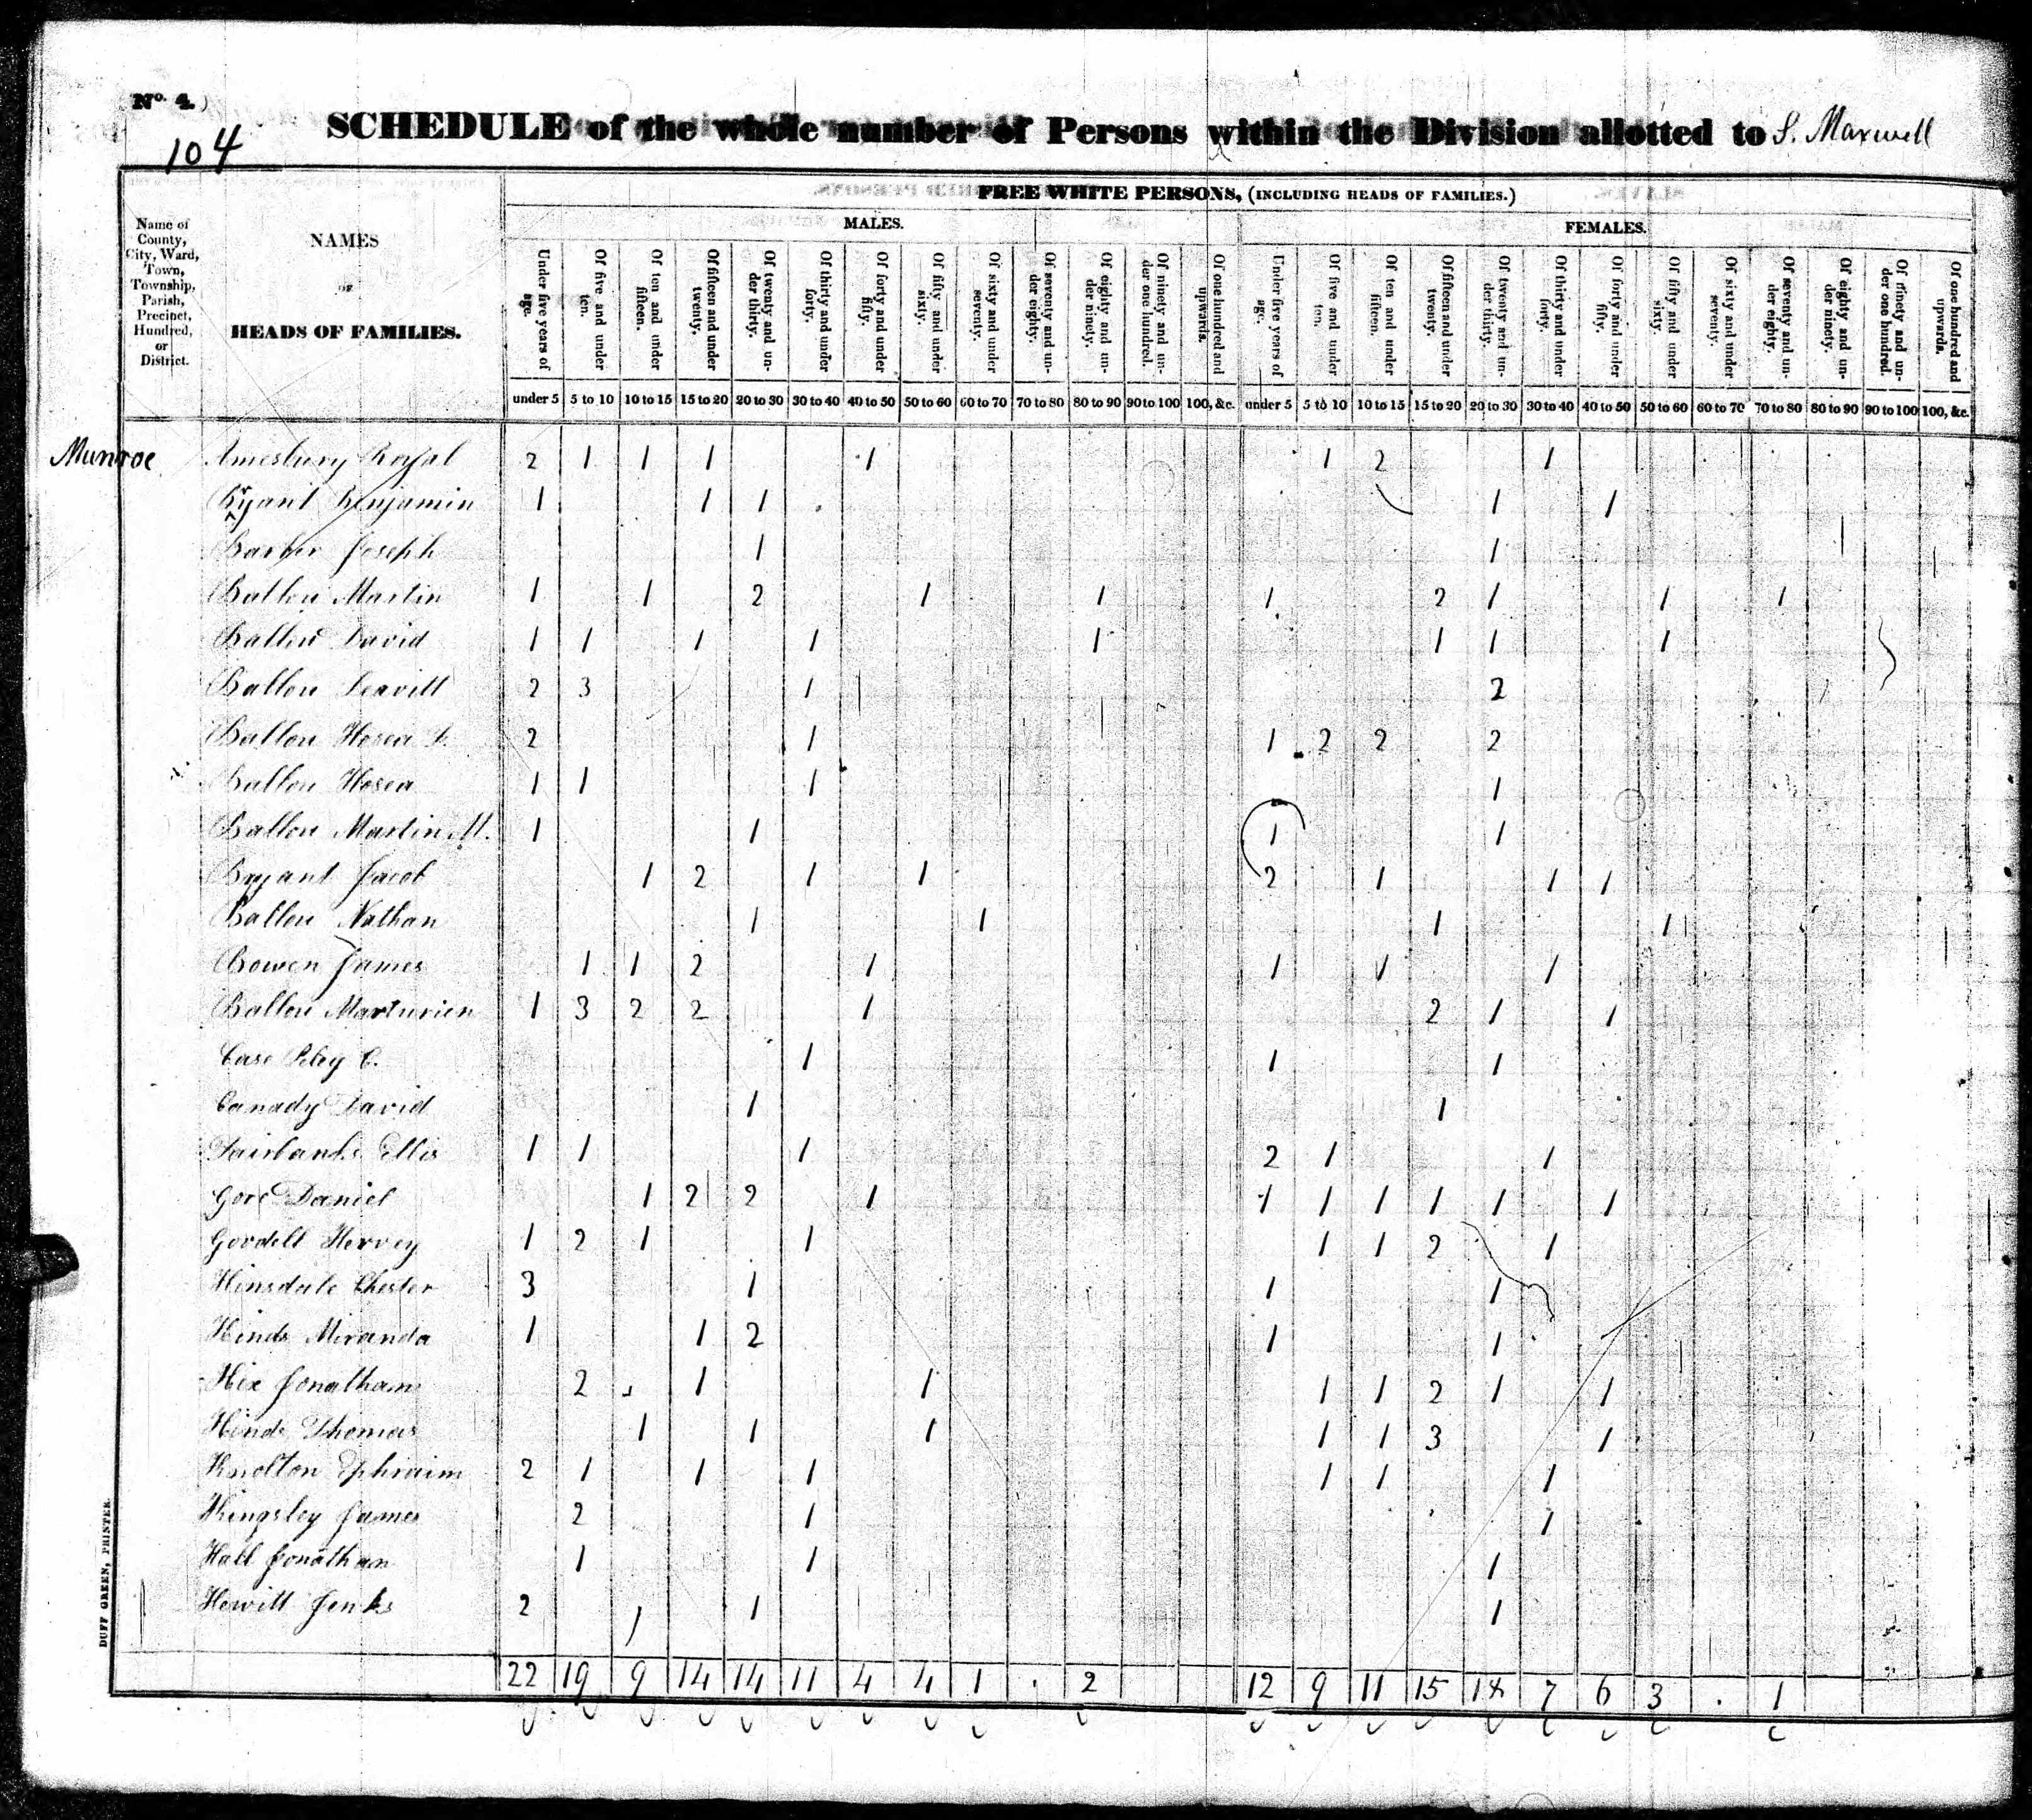 No. 4.
104
SCHEDULE of the whole number of Persons within the Division allotted to S. Maxwell
FREE WHITE PERSONS, (INCLUDING HEADS OF FAMILIES.)
MALES. FEMALES.
Name of County, City, Ward, Town, Township, Parish, Precinct, Hundred, or District.
NAMES
OF
HEADS OF FAMILIES.
Under five years of age.
Of five and under ten.
Of ten and under fifteen.
Of fifteen and under twenty.
Of twenty and under thirty.
Of thirty and under forty.
Of forty and under fifty.
Of fifty and under sixty.
Of sixty and under seventy.
Of seventy and under eighty.
Of eighty and under ninety.
Of ninety and under one hundred.
Of one hundred and upwards.
Under five years of age.
Of five and under ten.
Of ten and under fifteen.
Of fifteen and under twenty.
Of twenty and under thirty.
Of thirty and under forty.
Of forty and under fifty.
Of fifty and under sixty.
Of sixty and under seventy.
Of seventy and under eighty.
Of eighty and under ninety.
Of ninety and under one hundred.
Of one hundred and upwards.
under 5 5 to 10 10 to 15 15 to 20 20 to 30 30 to 40 40 to 50 50 to 60 60 to 70 70 to 80 80 to 90 90 to 100 100, &c. under 5 5 to 10 10 to 15 15 to 20 20 to 30 30 to 40 40 to 50 50 to 60 60 to 70 70 to 80 80 to 90 90 to 100 100, &c.
Munroe Amesbury Royal 2 1 1 1 1 1 2 1
Bryant Benjamin 1 1 1 1 1
Barber Joseph 1 1
Ballou Martin 1 1 2 1 1 1 2 1 1 1
Ballou David 1 1 1 1 1 1 1 1
Ballou Leavitt 2 3 1 2
Ballou Hosea 2 1 1 2 2 2
Ballou Hosea 1 1 1 1
Ballou Martin M. 1 1 1 1
Bryant Jacob 1 2 1 1 2 1 1 1
Ballou Nathan 1 1 1 1
Bowen James 1 1 2 1 1 1 1
Ballou Marturien 1 3 2 2 1 2 1 1
Case C. 1 1 1
Canady David 1 1
Fairbanks Ellis 1 1 1 2 1 1
Gore Daniel 1 2 2 1 1 1 1 1 1 1
Goodell Hervey 1 2 1 1 1 1 2 1
Hinsdale Chester 3 1 1 1
Hinds Miranda 1 1 2 1 1
Hix Jonathan 2 1 1 1 1 1 2 1 1
Hinds Thomas 1 1 1 1 1 3 1
Knolton Ephraim 2 1 1 1 1 1 1
Kingsley James 2 1 1
Hall Jonathan 1 1 1
Hewitt Jenks 2 1 1 1
22 19 9 14 14 11 4 4 1 . 2 12 9 11 15 18 7 6 3 . 1
DUFF GREEN, PRINTER.